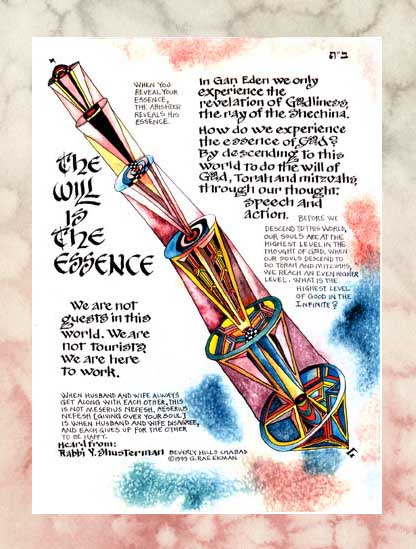 ב"ה
In Gan Eden we only
experience the
revelation of G○dliness,
the ray of the Shechina.
How do we experience
the essence of G○d?
By descending to this
world to do the will of
G○d, Torah and mitzvahs,
through our thought,
speech and
action.
WHEN YOU
REVEAL YOUR
ESSENCE,
THE
REVEALS HIS
ESSENCE.
the
Will
is
the
Essence
BEFORE WE
DESCEND TO THIS WORLD,
OUR SOULS ARE AT THE
HIGHEST LEVEL IN THE
THOUGHT OF G○D. WHEN
OUR SOULS DESCEND TO
DO TORAH AND MITZVAHS,
WE REACH AN EVEN HIGHER
LEVEL. WHAT IS THE
HIGHEST LEVEL
OF GOOD IN THE
INFINITE?
We are not
guests in this
world. We are
not tourists.
We are here
to work.
WHEN HUSBAND AND WIFE ALWAYS
GET ALONG WITH EACH OTHER, THIS
IS NOT MESERIUS NEFESH,
NEFESH [GIVING OVER YOUR SOUL]
IS WHEN HUSBAND AND WIFE DISAGREE,
AND EACH GIVES UP FOR THE OTHER
TO BE HAPPY.
Heard from:
Rabbi Y. Shusterman BEVERLY HILLS CHABAD
©1999 G. RAE EKMAN